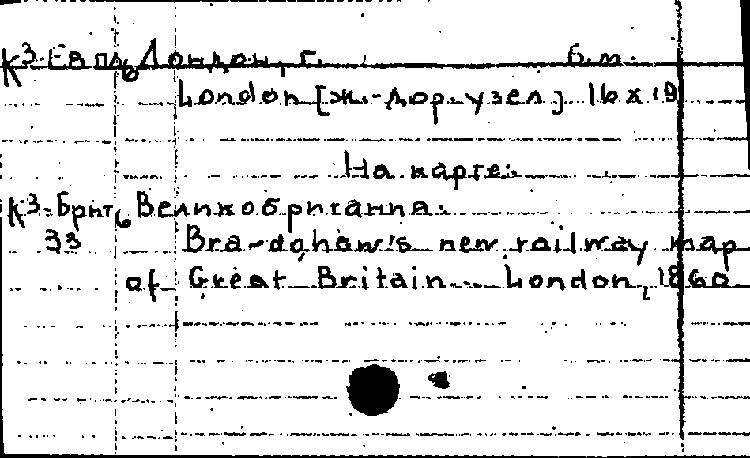 К3-Евпл6 Лондон, г. б.м.
London [ж.-дор. узел] 16x19
На карте:
К3-Брит6 Великобритания.
33 Bra-dshaw's new railway map
of Great Britain... London, 1860